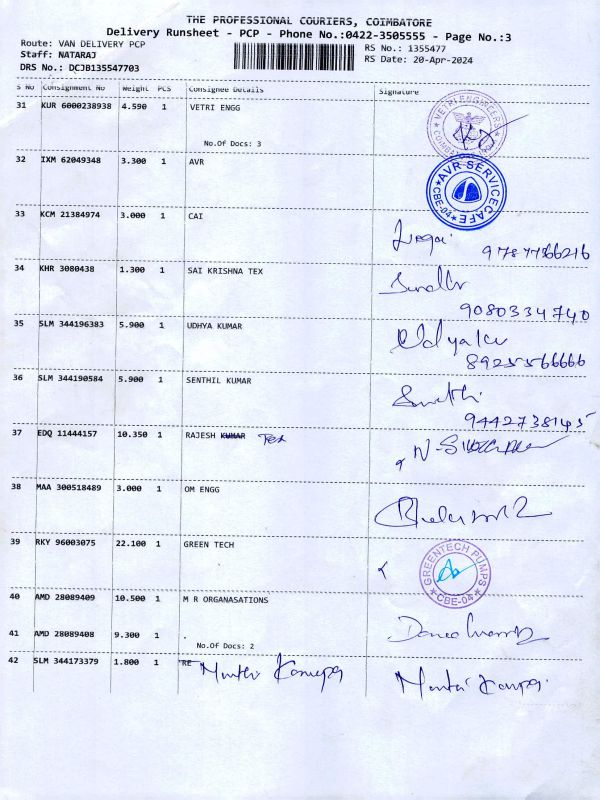 THE PROFESSIONAL COURIERS, COIMBATORE
Delivery Runsheet - PCP - Phone No.:0422-3505555 - Page No.:3
Route: VAN DELIVERY PCP RS No.: 1355477
Staff: NATARAJ RS Date: 20-Apr-2024
DRS No.: DCJB135547703
S No Consignment No Weight PCS Consignee Details Signature
31 KUR 6000238938 4.590 1 VETRI ENGG
No.Of Docs: 3
VETRI ENGINEERS
32 IXM 62049348 3.300 1 AVR
AVR SERVICE CAFE
CBE-04
33 KCM 21384974 3.000 1 CAI
9787756216
34 KHR 3080438 1.300 1 SAI KRISHNA TEX
9080334740
35 SLM 344196383 5.900 1 UDHYA KUMAR
8925566666
36 SLM 344190584 5.900 1 SENTHIL KUMAR
9442738145
37 EDQ 11444157 10.350 1 RAJESH KUMAR Tex
38 MAA 300518489 3.000 1 OM ENGG
39 RKY 96003075 22.100 1 GREEN TECH
GREENTECH PUMPS
CBE-04
40 AMD 28089409 10.500 1 M R ORGANASATIONS
41 AMD 28089408 9.300 1 .
No.Of Docs: 2
42 SLM 344173379 1.800 1